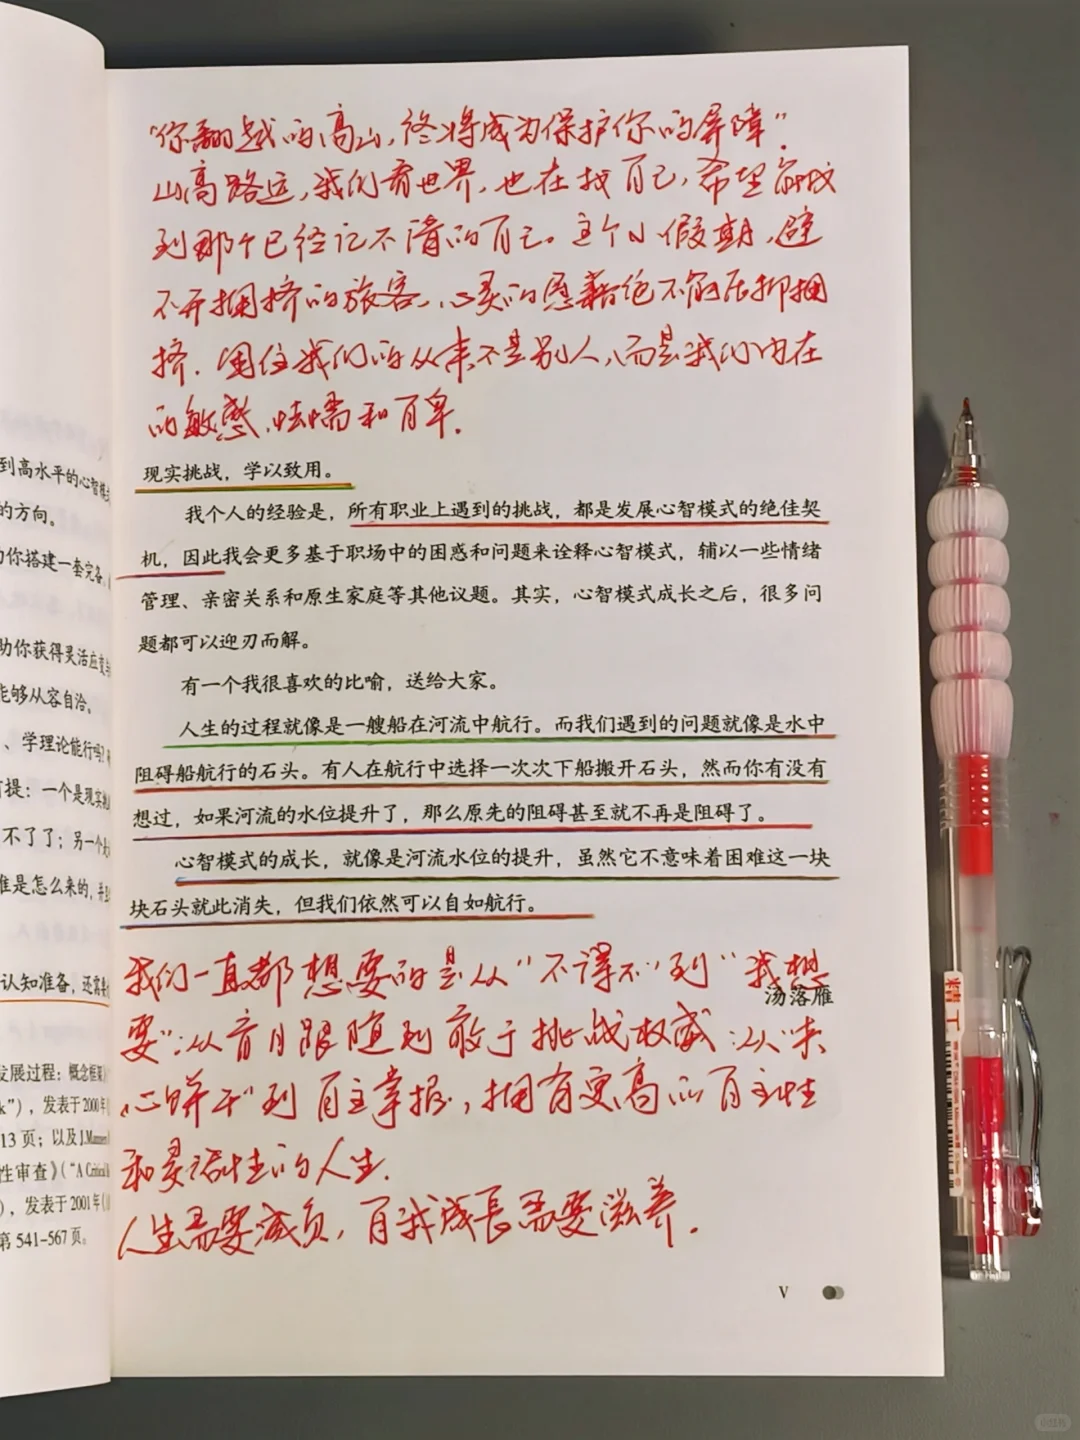 到高水平的心智模
的方向。
你搭建一套完备
助你获得灵活应变
能够从容自洽。
、学理论能行吗？
提：一个是现实
不了了；另一个
是怎么来的，
认知准备，还需
发展过程：概念框架
k”），发表于2000年
13页；以及J.Manners
性审查》（“A Critical
），发表于2001年
第541-567页。
“你翻越的高山，终将成为保护你的屏障”。
山高路远，我们看世界，也在找自己，希望能找
到那个已经记不清的自己。这个小假期，避
不开拥挤的旅客，心灵的慰藉绝不能压抑拥
挤．困住我们的从来不是别人，而是我们内在
的敏感、怯懦和自卑．
现实挑战，学以致用。
我个人的经验是，所有职业上遇到的挑战，都是发展心智模式的绝佳契
机，因此我会更多基于职场中的困惑和问题来诠释心智模式，辅以一些情绪
管理、亲密关系和原生家庭等其他议题。其实，心智模式成长之后，很多问
题都可以迎刃而解。
有一个我很喜欢的比喻，送给大家。
人生的过程就像是一艘船在河流中航行。而我们遇到的问题就像是水中
阻碍船航行的石头。有人在航行中选择一次次下船搬开石头，然而你有没有
想过，如果河流的水位提升了，那么原先的阻碍甚至就不再是阻碍了。
心智模式的成长，就像是河流水位的提升，虽然它不意味着困难这一块
块石头就此消失，但我们依然可以自如航行。
我们一直都想要的是从“不得不”到“我想
汤落雁
要”：从盲目跟随到敢于挑战权威：从“夹
心饼干”到自主掌握，拥有更高的自主性
和灵活性的人生．
人生需要减负，自我成长需要滋养．
V
精工